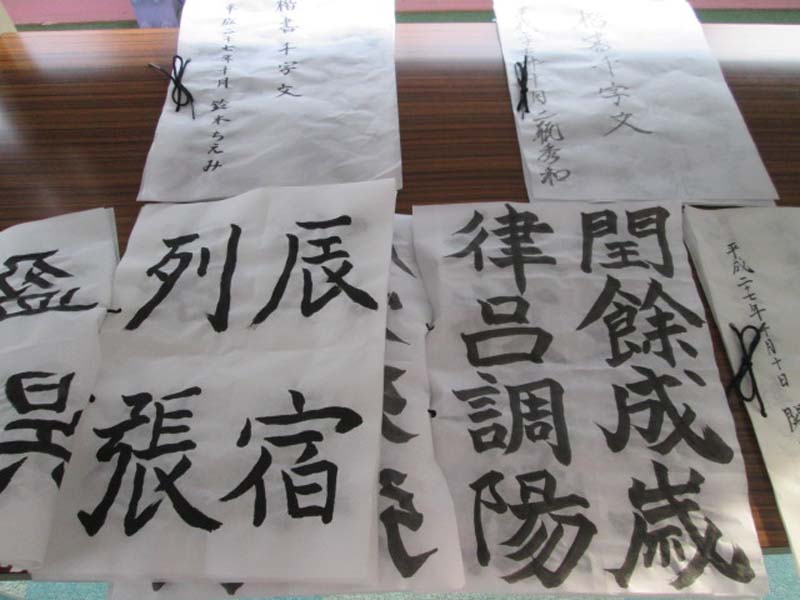 楷書千字文
平成二十七年十月 鈴木ちえみ
楷書千字文
二瓶秀和
辰宿
列張
閏餘成歳
律呂調陽
平成二十七年十月十日
盈
昃